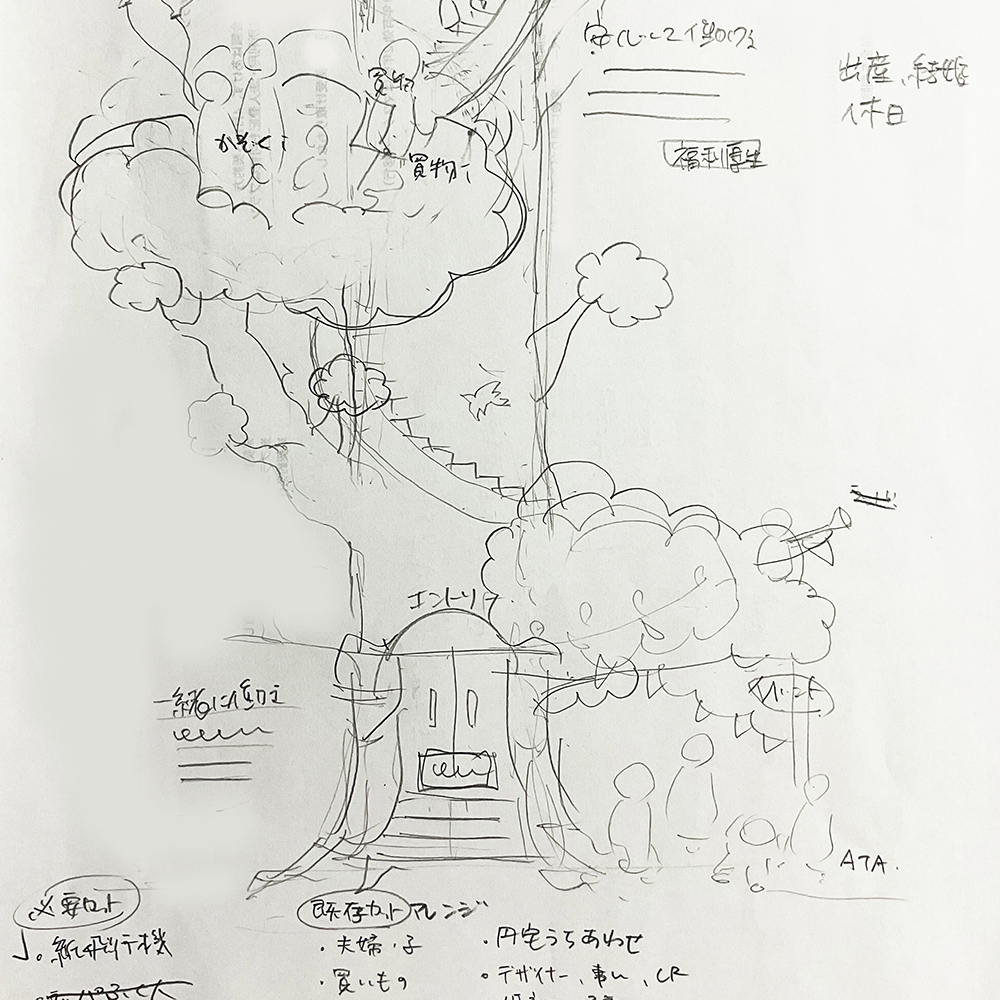 安心して働ける
出産、結婚
休日
福利厚生
買物
かぞく
買物
エントリー
一緒に働く
イベント
ATA.
必要カット
紙飛行機
既存カット アレンジ
・夫婦・子
・買いもの
・円卓うちあわせ
・デザイナー、事ム、CR